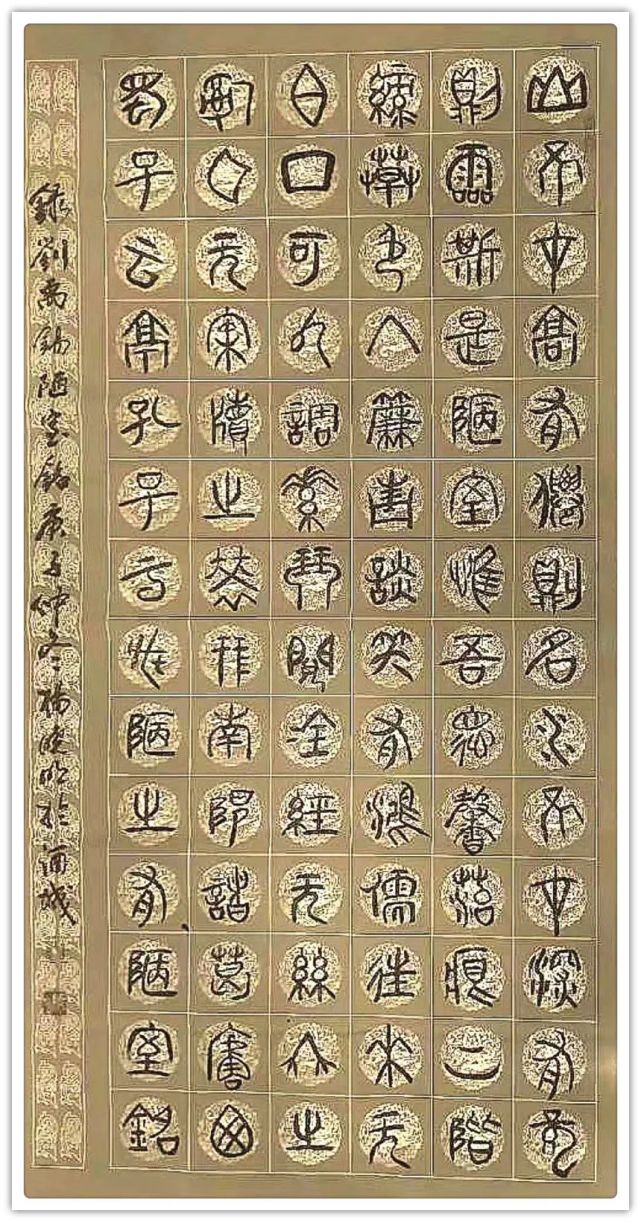 山不在高有僊則名水不在深有龍
則靈斯是陋室惟吾德馨菭痕上階
綠草色入簾青談笑有鴻儒往來无
白丁可以調素琴閱金經无絲竹之
亂耳无案牘之勞形南陽諸葛廬西
蜀子云亭孔子云何陋之有陋室銘
錄劉禹錫陋室銘庚子仲冬楊曉明於酒城